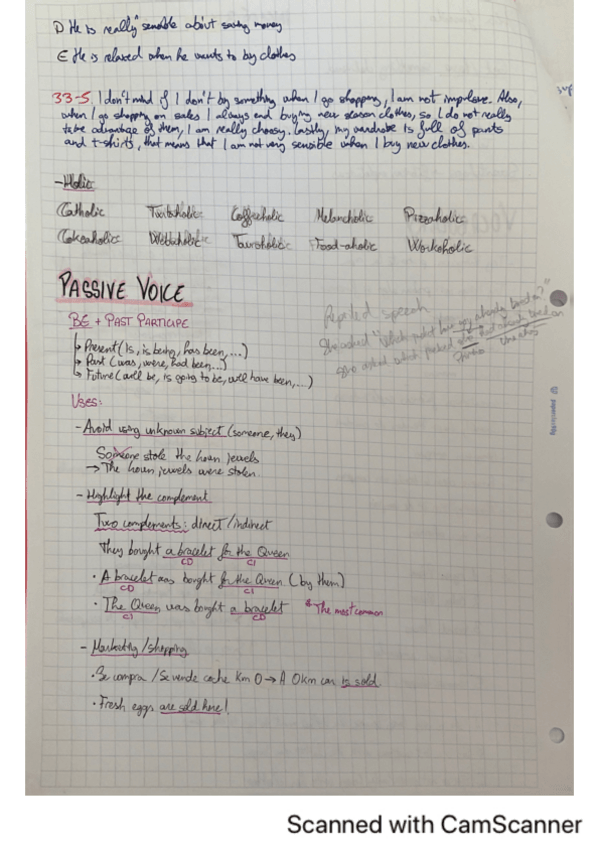 D He is really sensible about saving money
E He is relaxed when he wants to by clothes
33-5 I don't mind if I don't by something when I go shopping, I am not impulsive. Also,
when I go shopping on sales I always end buying new season clothes, so I do not really
take advantage of them, I am really choosy. Lastly, my wardrobe is full of pants
and t-shirts, that means that I am not very sensible when I buy new clothes.
-Holic
Catholic Twitaholic Coffeeholic Melancholic Pizzaholic
Cokeaholic Webaholic Food-aholic Workoholic
PASSIVE VOICE
BE + PAST PARTICIPE
Present (Is, is being, has been, ...)
Past (was, were, had been...)
Future (will be, is going to be, will have been, ...)
Uses:
- Avoid using unknown subject (someone, they)
Someone stole the jewels
→ The jewels were stolen
- Highlight the complement
Two complements: direct / indirect
They bought a bracelet for the Queen
CD CI
· A bracelet was bought for the Queen (by them)
CD CI
· The Queen was bought a bracelet * The most common
CI CD
- Marketing / shopping
· Se compra / Se vende coche Km 0 → A 0km car is sold
· Fresh eggs are sold here!
Repoted speech
She asked "Which
She asked which
paperbuddy
Scanned with CamScanner